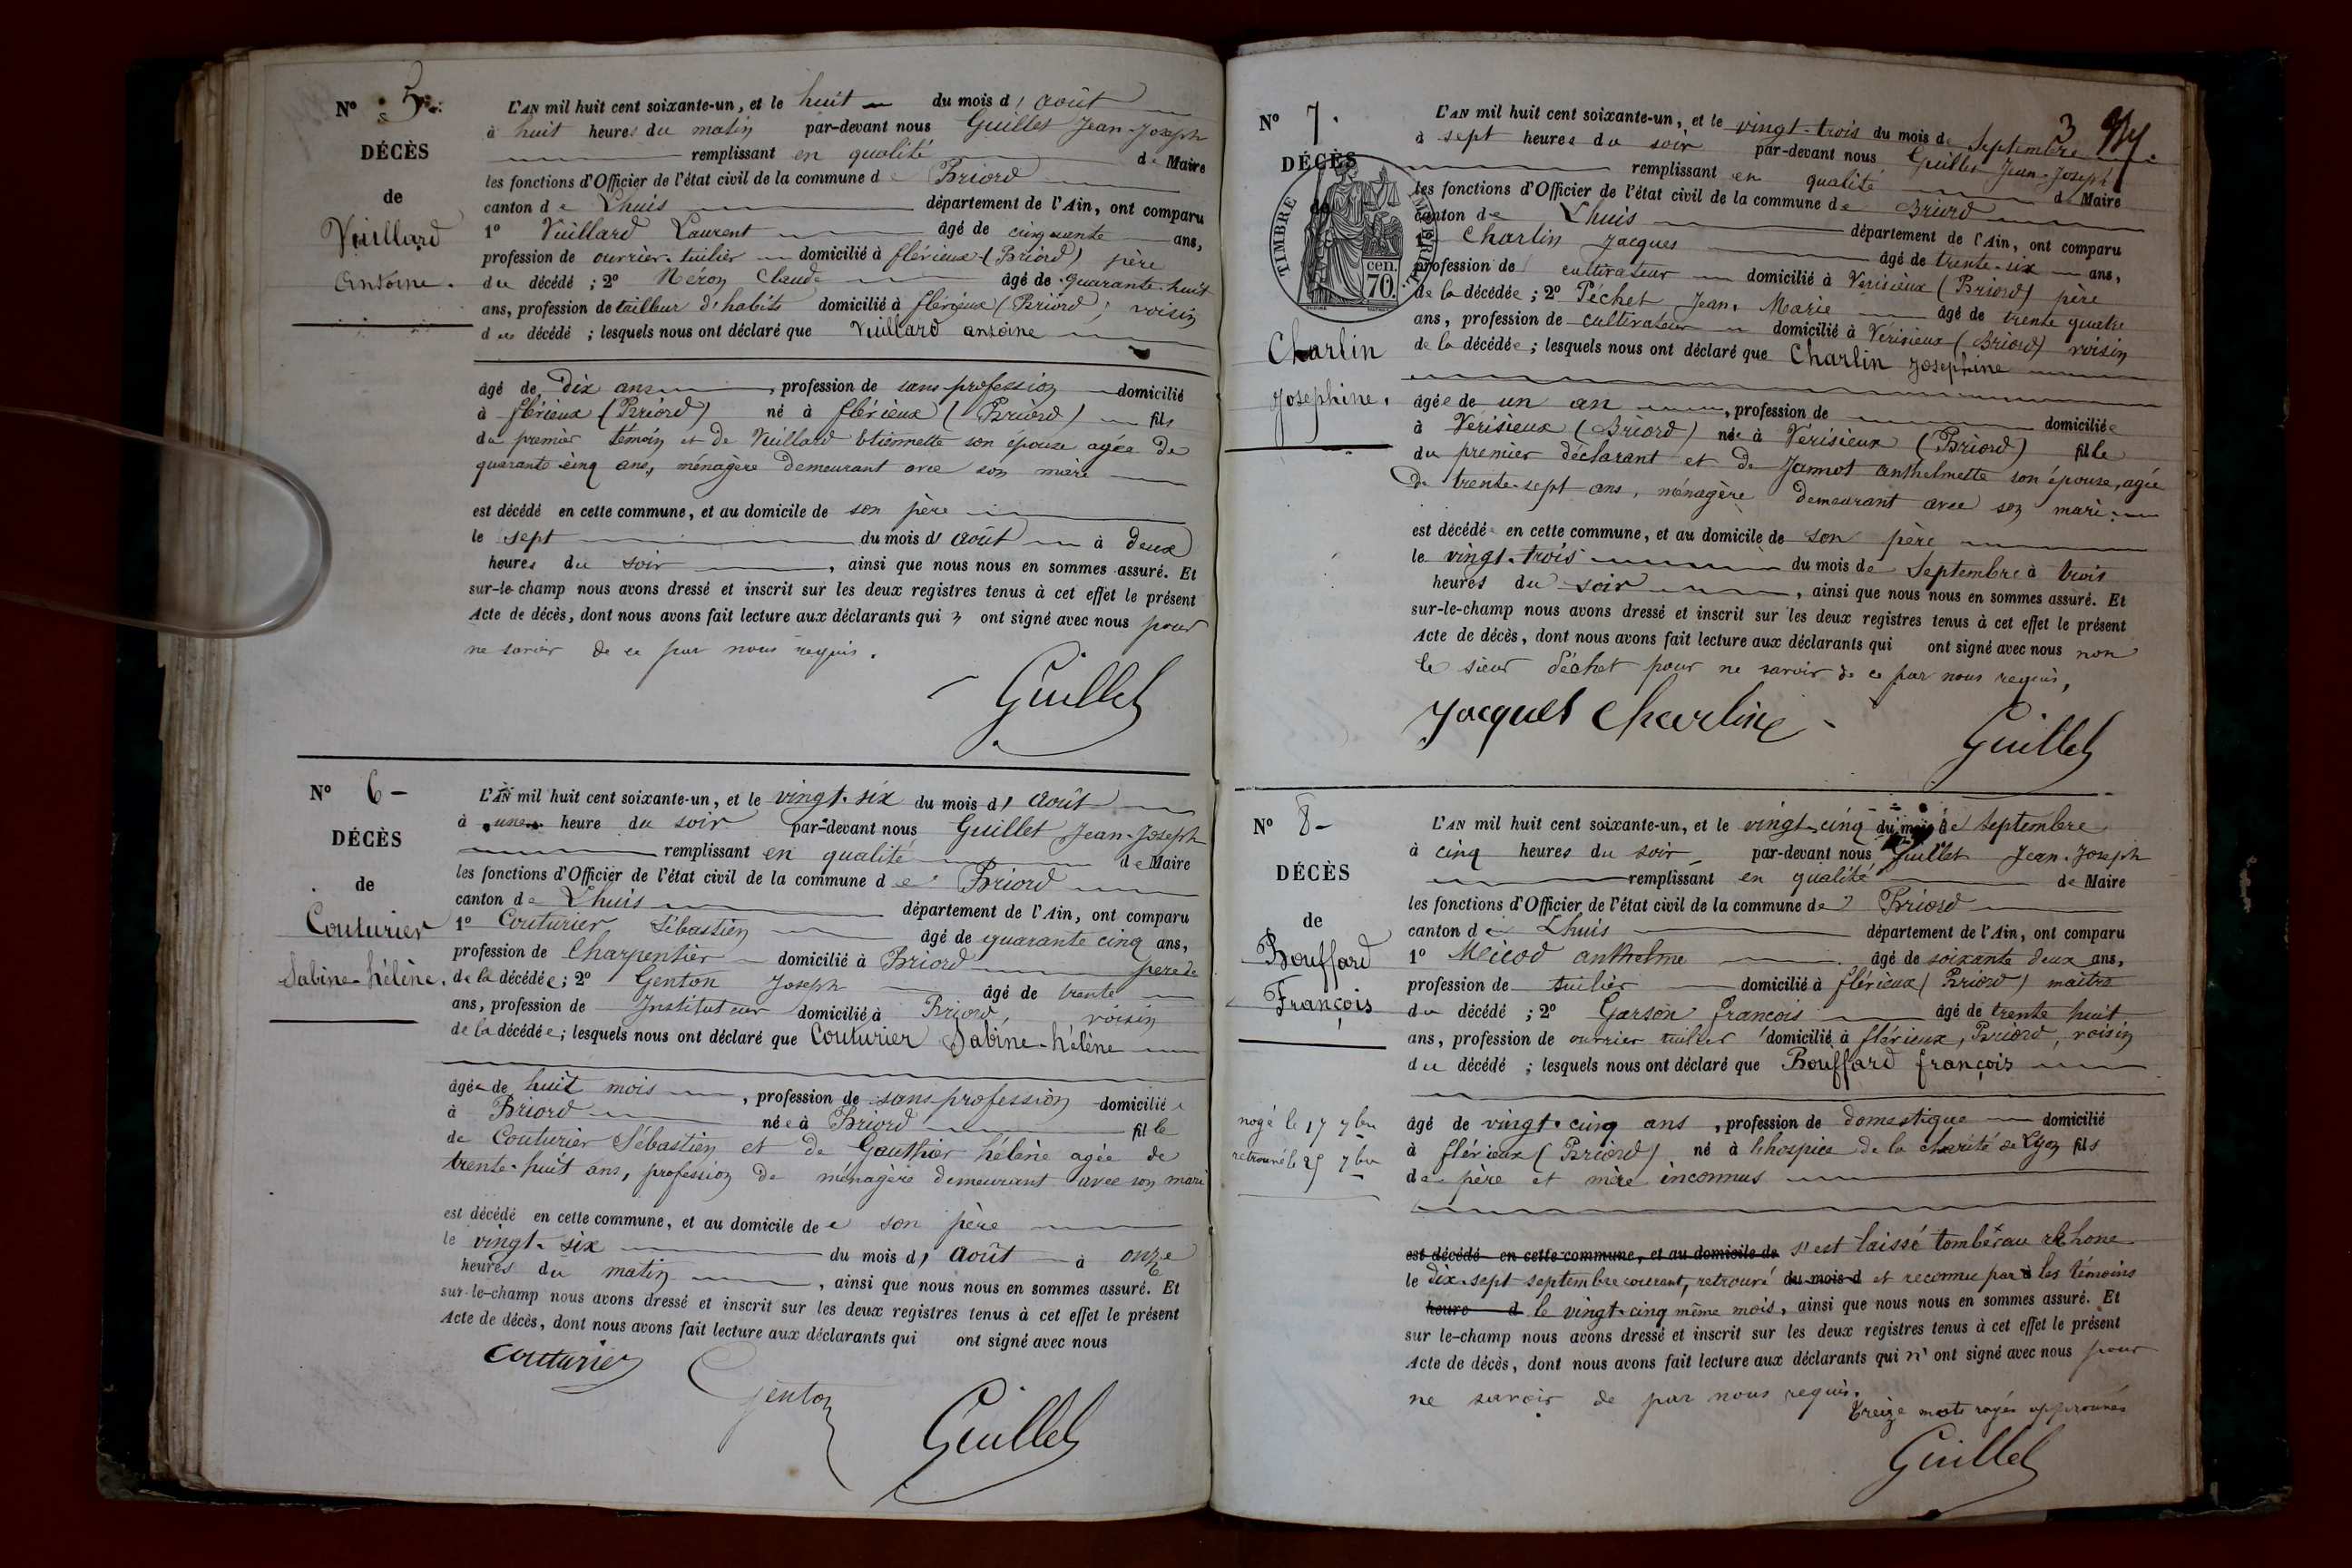 Nº 5
DÉCÈS
de
Vuillard
Antoine.
L'AN mil huit cent soixante-un, et le huit du mois d' août
à huit heures du matin par-devant nous Guillet Jean-Joseph
remplissant en qualité de Maire
les fonctions d'Officier de l'état civil de la commune de Briord
canton de Lhuis département de l'Ain, ont comparu
1º Vuillard Laurent âgé de cinquante ans,
profession de ouvrier-tuilier domicilié à flérieux (Briord) père
du décédé ; 2º Néron Claude âgé de quarante-huit
ans, profession de tailleur d'habits domicilié à flérieux (Briord) voisin
du décédé ; lesquels nous ont déclaré que Vuillard antoine
âgé de dix ans, profession de sans profession domicilié
à flérieux (Briord) né à flérieux (Briord) fils
du premier témoin et de Vuillard Etiennette son épouse agée de
quarante cinq ans, ménagère demeurant avec son mère
est décédé en cette commune, et au domicile de son père
le sept du mois d' août à deux
heures du soir, ainsi que nous nous en sommes assuré. Et
sur-le-champ nous avons dressé et inscrit sur les deux registres tenus à cet effet le présent
Acte de décès, dont nous avons fait lecture aux déclarants qui n ont signé avec nous pour
ne savoir de ce par nous requis.
Guillet
Nº 6
DÉCÈS
de
Couturier
Sabine-hélène.
L'AN mil huit cent soixante-un, et le vingt-six du mois d' août
à une heure du soir par-devant nous Guillet Jean-Joseph
remplissant en qualité de Maire
les fonctions d'Officier de l'état civil de la commune de Briord
canton de Lhuis département de l'Ain, ont comparu
1º Couturier Sébastien âgé de quarante cinq ans,
profession de Charpentier domicilié à Briord père de
de la décédée ; 2º Genton Joseph âgé de trente
ans, profession de Instituteur domicilié à Briord, voisin
de la décédée ; lesquels nous ont déclaré que Couturier Sabine-hélène
âgée de huit mois, profession de sans profession domicilié
à Briord née à Briord fille
de Couturier Sébastien et de Gauthier hélène agée de
trente-huit ans, profession de ménagère demeurant avec son mari
est décédé en cette commune, et au domicile de son père
le vingt-six du mois d' août à onze
heures du matin, ainsi que nous nous en sommes assuré. Et
sur-le-champ nous avons dressé et inscrit sur les deux registres tenus à cet effet le présent
Acte de décès, dont nous avons fait lecture aux déclarants qui ont signé avec nous
Couturier Genton
Guillet
3
Nº 7.
DÉCÈS
de
TIMBRE IMPÉRIAL
cen.
70.
Charlin
Josephine.
L'AN mil huit cent soixante-un, et le vingt-trois du mois de Septembre
à sept heures du soir par-devant nous Guillet Jean-Joseph
remplissant en qualité de Maire
les fonctions d'Officier de l'état civil de la commune de Briord
canton de Lhuis département de l'Ain, ont comparu
1º Charlin Jacques âgé de trente-six ans,
profession de cultivateur domicilié à Vérisieux (Briord) père
de la décédée ; 2º Péchet Jean-Marie âgé de trente quatre
ans, profession de cultivateur domicilié à Vérisieux (Briord) voisin
de la décédée ; lesquels nous ont déclaré que Charlin Josephine
âgée de un an, profession de domiciliée
à Vérisieux (Briord) née à Vérisieux (Briord) fille
du premier déclarant et de Jannot anthelmette son épouse, agée
de trente-sept ans, ménagère demeurant avec son mari.
est décédé en cette commune, et au domicile de son père
le vingt-trois du mois de Septembre à trois
heures du soir, ainsi que nous nous en sommes assuré. Et
sur-le-champ nous avons dressé et inscrit sur les deux registres tenus à cet effet le présent
Acte de décès, dont nous avons fait lecture aux déclarants qui ont signé avec nous non
le sieur Péchet pour ne savoir de ce par nous requis,
Jacques Charlin
Guillet
Nº 8
DÉCÈS
de
Bouffard
François
noyé le 17 7bre
retrouvé le 25 7bre
L'AN mil huit cent soixante-un, et le vingt-cinq du mois de Septembre
à cinq heures du soir par-devant nous Guillet Jean-Joseph
remplissant en qualité de Maire
les fonctions d'Officier de l'état civil de la commune de Briord
canton de Lhuis département de l'Ain, ont comparu
1º Micod anthelme âgé de soixante deux ans,
profession de tuilier domicilié à flérieux (Briord) maître
du décédé ; 2º Garson françois âgé de trente huit
ans, profession de ouvrier tuilier domicilié à flérieux, Briord, voisin
du décédé ; lesquels nous ont déclaré que Bouffard françois
âgé de vingt-cinq ans, profession de domestique domicilié
à flérieux (Briord) né à l'hospice de la charité de Lyon fils
de père et mère inconnus
est décédé en cette commune, et au domicile de s'est laissé tomber au Rhone
le dix-sept septembre courant, retrouvé du mois d et reconnu par à les témoins
heure d le vingt-cinq même mois, ainsi que nous nous en sommes assuré. Et
sur le-champ nous avons dressé et inscrit sur les deux registres tenus à cet effet le présent
Acte de décès, dont nous avons fait lecture aux déclarants qui n' ont signé avec nous pour
ne savoir de par nous requis.
treize mots rayés approuvés
Guillet